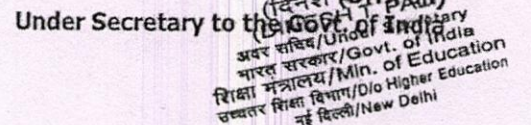 Under Secretary to the Govt. of India
अवर सचिव/Under Secretary
भारत सरकार/Govt. of India
शिक्षा मंत्रालय/Min. of Education
उच्चतर शिक्षा विभाग/D/o Higher Education
नई दिल्ली/New Delhi